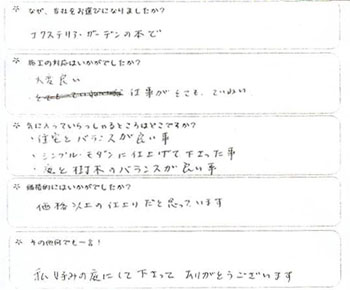 ※ なぜ、当社をお選びになりましたか?
エクステリア・ガーデンの本で
※ 施工の対応はいかがでしたか?
大変良い
仕事がとても、ていねい
※ 気に入っていらっしゃるところはどこですか?
・住宅とバランスが良い事
・シンプル・モダンに仕上げて下さった事
・庭と樹木のバランスが良い事
※ 価格的にはいかがでしたか?
価格以上の仕上りだと思っています
※ その他何でも一言!
私好みの庭にして下さって ありがとうございます